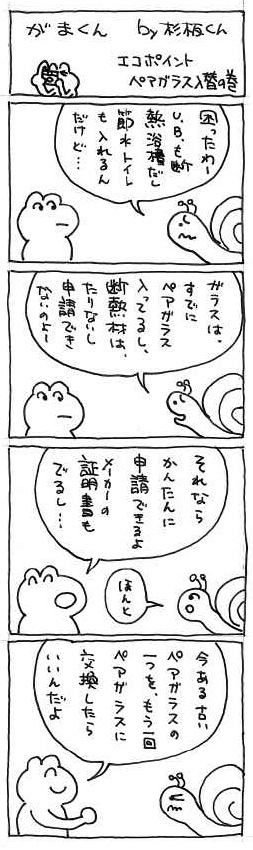 がまくん by杉板くん
エコポイント
ペアガラス入替の巻
困ったわー
U.B.も断
熱浴槽だし
節水トイレ
も入れるん
だけど…
ガラスは、
すでに
ペアガラス
入ってるし、
断熱材は、
たりないし
申請でき
ないのよー
それなら
かんたんに
申請できるよ
メーカーの
証明書も
でるし…
ほんと
今ある古い
ペアガラスの
一つを、もう一回
ペアガラスに
交換したら
いいんだよ